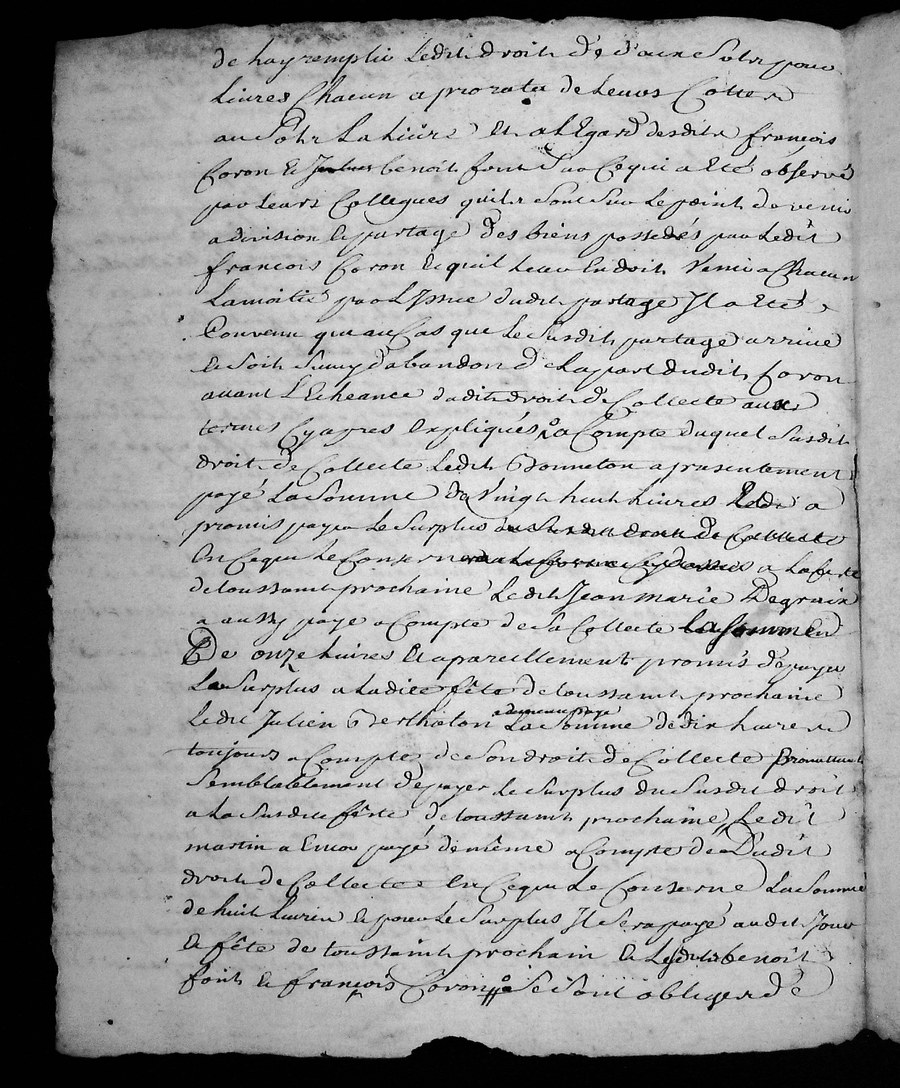 de hay remplir ledit droit de deux sols pour
Livres Chacun a prorata de Leurs Cottes
au sols La Livre Et a L'Egard desdits françois
Coron & benoit font Sur Cequi a Eté observé
par Leurs Collegues quils Sont Sur Le point de venir
a division & partage des biens possedés par Ledit
francois Coron & quil Leur En doit Venir a Chacun
La moitié par L'Issue dudit partage Il a Eté
Convenu qu'au Cas que Le Susdit partage arrive
& Soit Suivy d'abandon de La part dudit Coron
avant L'Echeance dudit droit de Collecte aux
termes Cy apres Expliqués a Compte duquel Susdit
droit de Collecte Ledit Bonneton a presentement
payé La Somme de Vingt huit Livres a
promis payer Le Surplus du Susdit droit de Collecte
En Cequi Le Conserne a La fete
de toussaint prochaine Ledit Jean marie Degrain
a aussy payé a Compte de Sa Collecte La Somme
De onze Livres Et a pareillement promis de payer
Le Surplus a Ladite fête de toussaint prochaine
Ledit Julien Berthelon a de meme payé La Somme de dix Livres
toujours a Compte de Son droit de Collecte promettant
Semblablement de payer Le Surplus du Susdit droit
a La Susdite fête de toussaint prochaine, Ledit
martin a Encor payé de même a Compte de Dudit
droit de Collecte En Cequi Le Conserne La Somme
de huit Livres & pour Le Surplus Il Sera payé audit Jour
& fête de toussaint prochain & Lesdits Benoit
font & françois Coron Se Sont obligés de